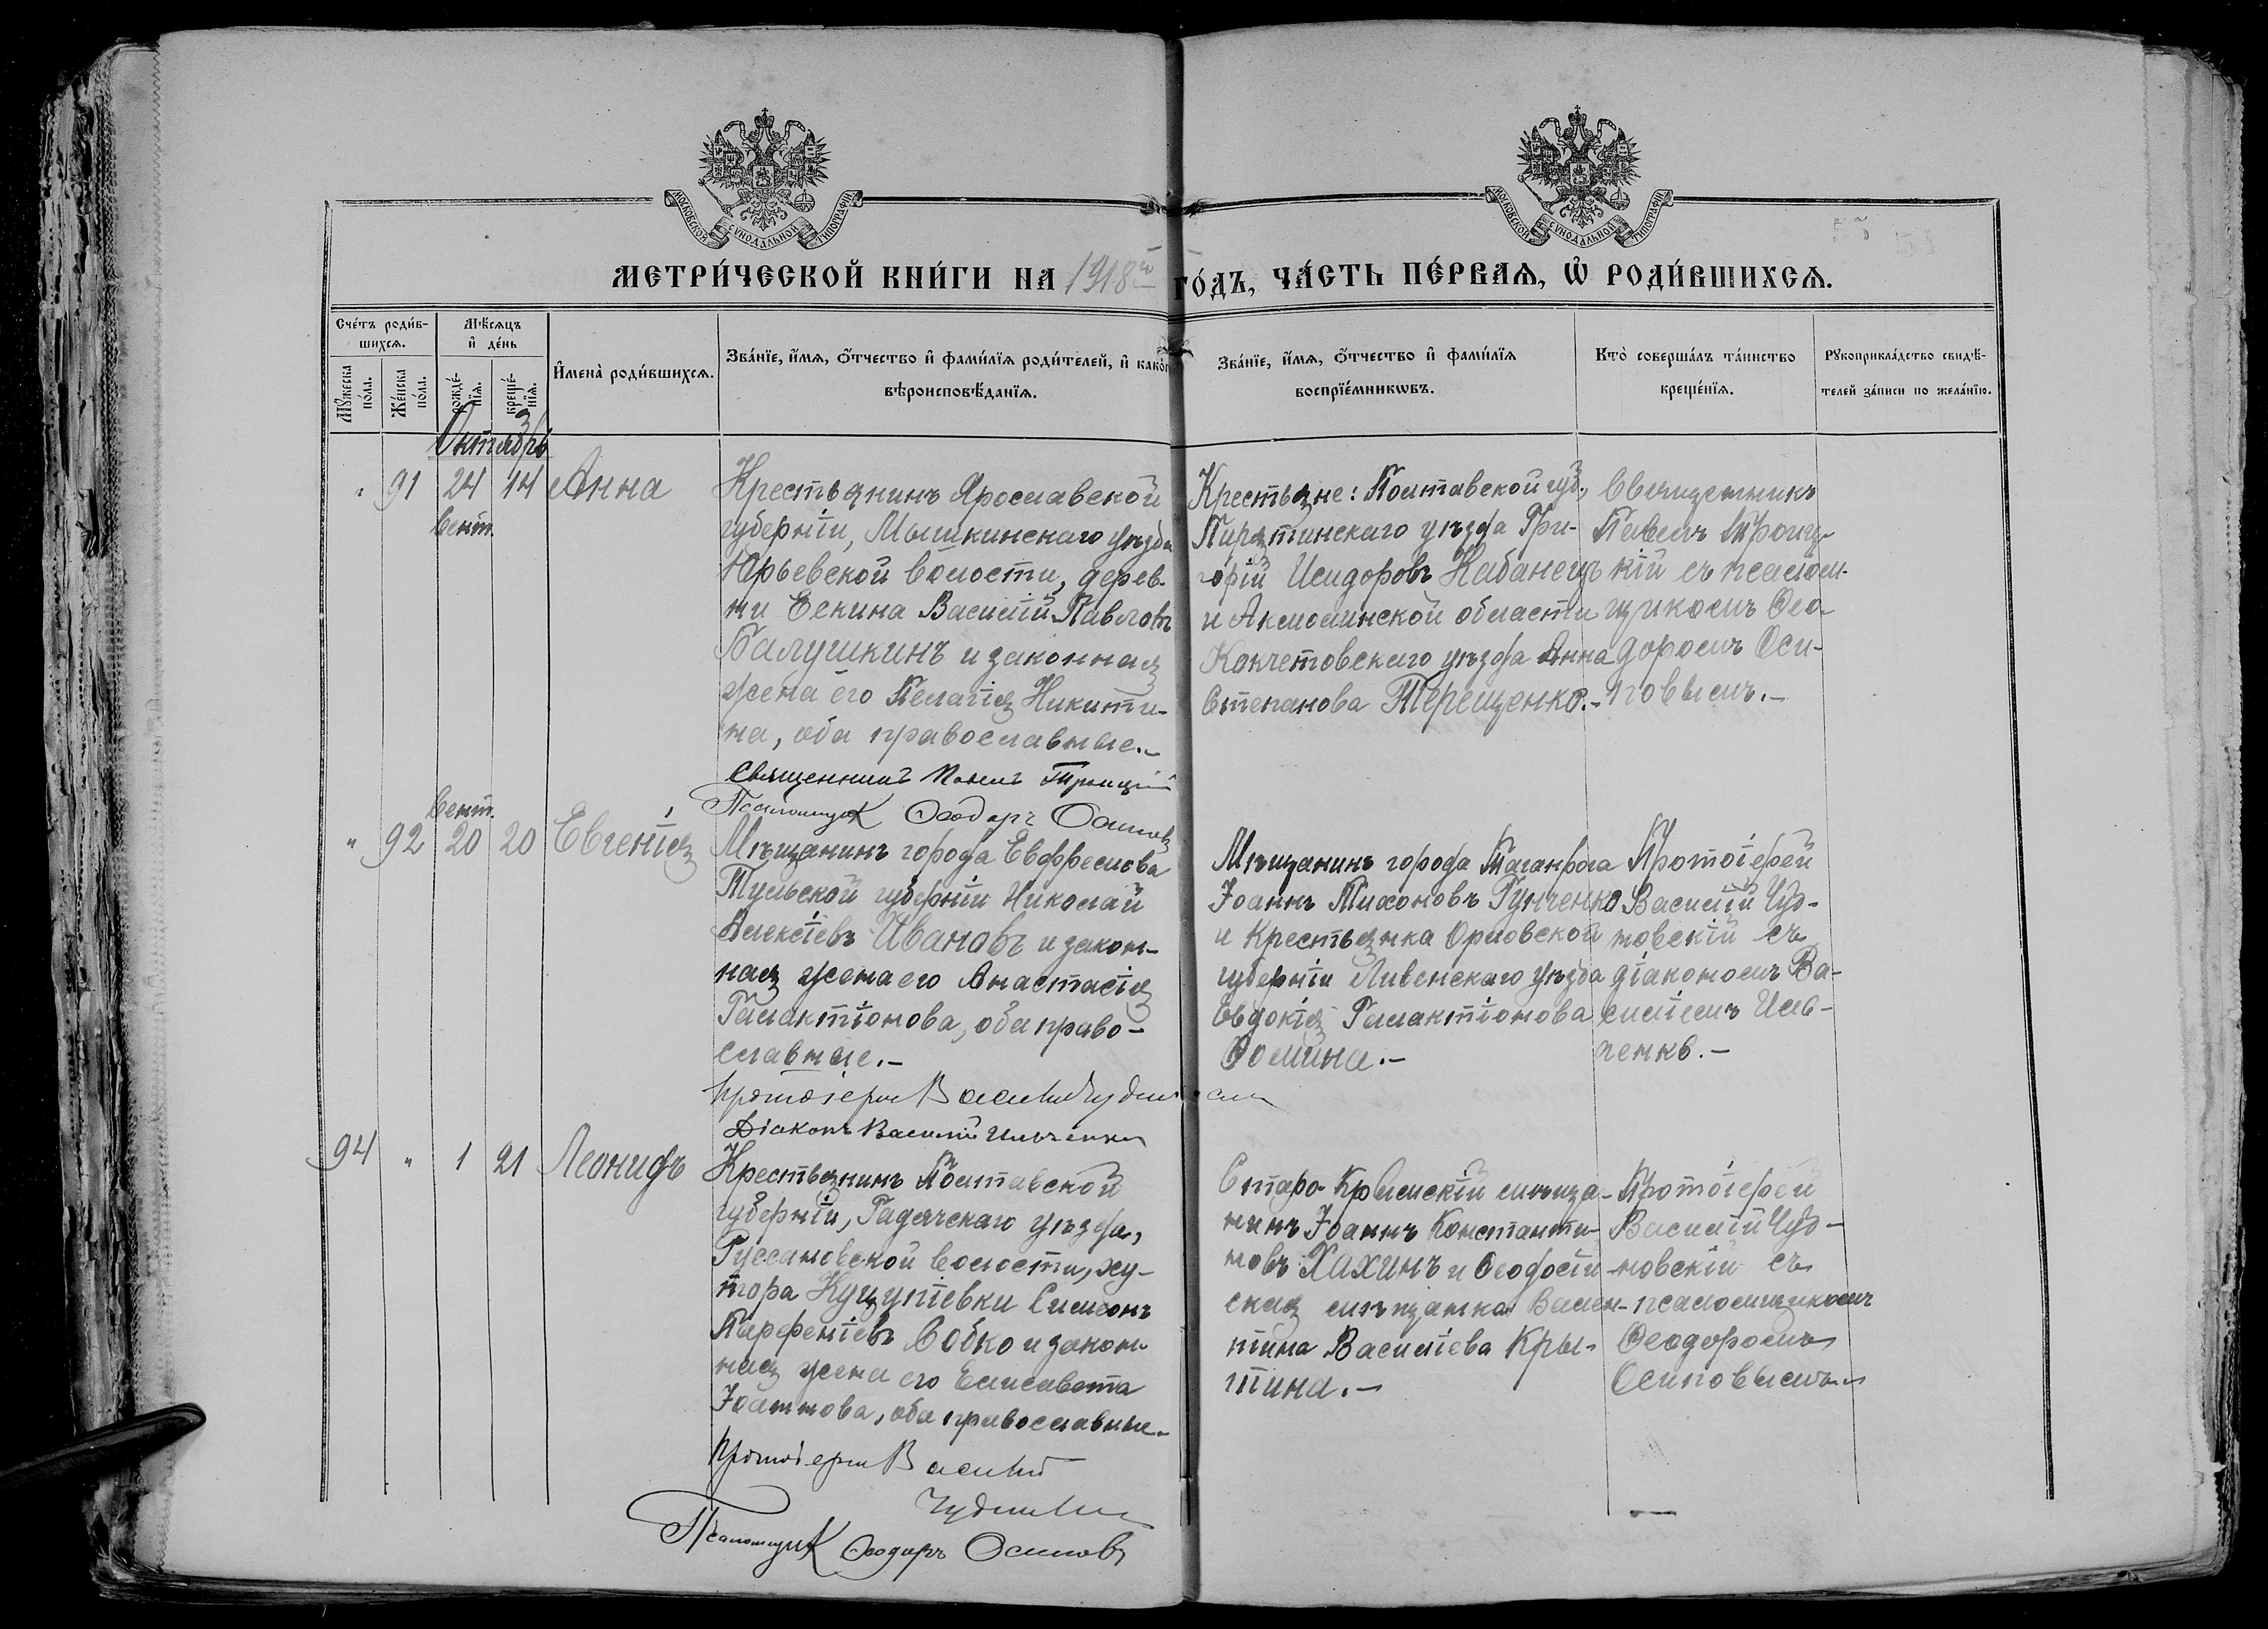 МОСКОВСКОЙ СѴНОДАЛЬНОЙ ТИПОГРАФІИ
МОСКОВСКОЙ СѴНОДАЛЬНОЙ ТИПОГРАФІИ
МЕТРИ́ЧЕСКОЙ КНИ́ГИ НА 1918й ГО́ДЪ, ЧА́СТЬ ПЕ́РВАѦ, Ѡ҆ РОДИ́ВШИХСѦ.
Сче́тъ роди́в-
шихсѧ.
Мꙋ́жеска по́ла.
Же́нска по́ла.
Мѣ́сѧцъ
и҆ де́нь
рожде́-
нїѧ.
креще́-
нїѧ.
И҆мена̀ роди́вшихсѧ.
Зва́нїе, и҆́мѧ, ѻ҆́тчество и҆ фами́лїѧ роди́телей, и҆ како́гѡ
вѣроисповѣ́данїѧ.
Зва́нїе, и҆́мѧ, ѻ҆́тчество и҆ фами́лїѧ
воспрїе́мникѡвъ.
Кто̀ соверша́лъ та́инство
креще́нїѧ.
Рꙋкоприкла́дство свидѣ́-
телей за́писи по жела́нїю.
Октябрь
" 91 24 14 Анна
Сент.
Крестьянинъ Ярославской
губерніи, Мышкинскаго уѣзда
Юрьевской волости, дерев-
ни Екина Василій Павловъ
Балушкинъ и законная
жена его Пелагія Никити-
на, оба православные.-
Священникъ Павелъ Троицкій
Псаломщикъ Ѳеодоръ Осиповъ
Крестьяне: Полтавской губ.,
Пирятинскаго уѣзда Гри-
горій Исидоровъ Кабанецъ
и Акмолинской области
Кокчетовскаго уѣзда Анна
Степанова Терещенко.-
Священникъ
Павелъ Троиц-
кій съ псалом-
щикомъ Ѳео-
доромъ Оси-
повымъ.-
Сент.
" 92 20 20 Евгенія
Мѣщанинъ города Евфремова
Тульской губерніи Николай
Алексіевъ Ивановъ и закон-
ная жена его Анастасія
Галактіонова, оба право-
славные.-
Протоіерей Василій Чудновскій
Діаконъ Василій Ильченко
Мѣщанинъ города Таганрога
Іоаннъ Тихоновъ Гунченко
и крестьянка Орловской
губерніи Ливенскаго уѣзда
Евдокія Галактіонова
Ѳомина.-
Протоіерей
Василій Чуд-
новскій съ
діакономъ Ва-
силіемъ Иль-
ченко.-
94 " 1 21 Леонидъ
Крестьянинъ Полтавской
губерніи, Гадячскаго уѣзда,
Руссановской волости, ху-
тора Куцупіевки Симеонъ
Парфеніевъ Собко и закон-
ная жена его Елисавета
Іоаннова, оба православные.
Протоіерей Василій
Чудновскій
Псаломщикъ Ѳеодоръ Осиповъ
Старо-Крымскій мѣща-
нинъ Іоаннъ Константи-
новъ Хахинъ и Ѳеодосій-
ская мѣщанка Вален-
тина Василіева Кры-
тина.-
Протоіерей
Василій Чуд-
новскій съ
псаломщикомъ
Ѳеодоромъ
Осиповымъ.-